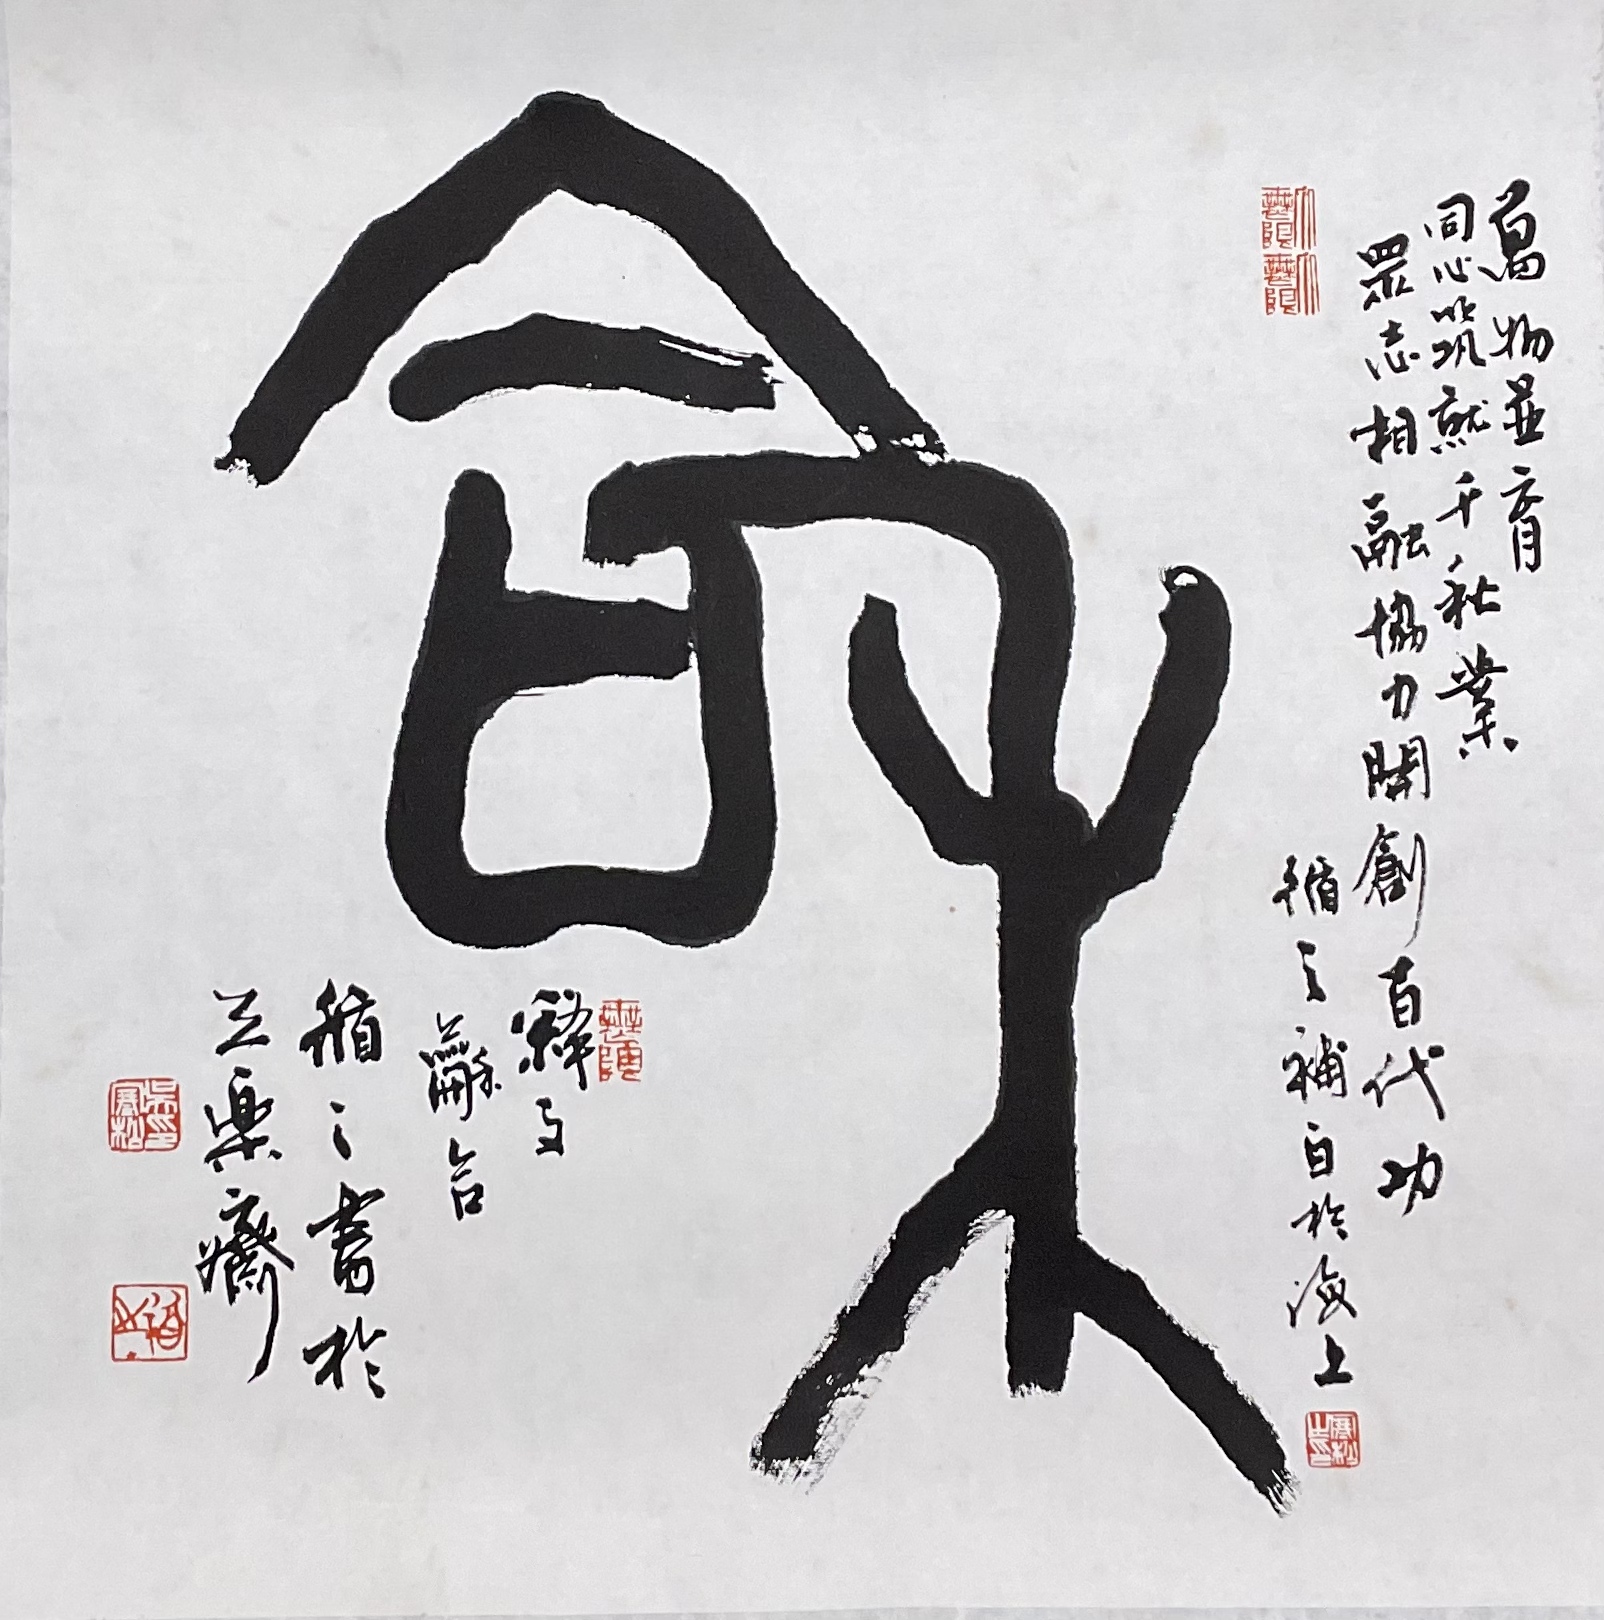 萬物並育
同心筑就千秋業
眾志相融協力開創百代功
循之補白於海上
釋文
龢合
循之書於
三樂齋
循之